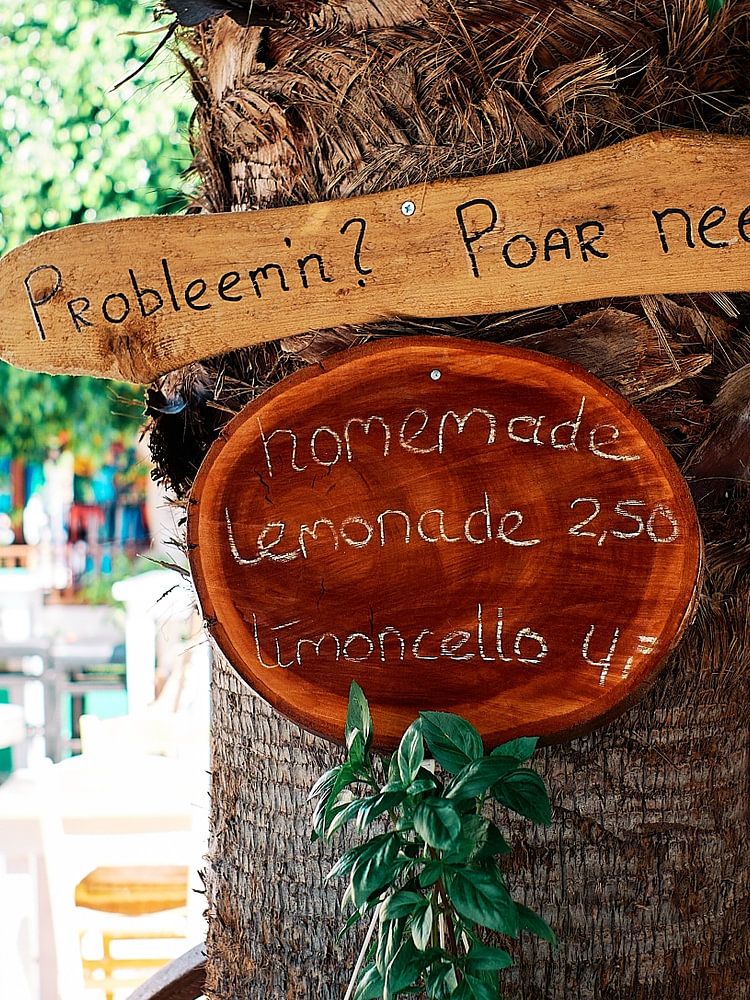 Probleem'n? Poar nee
homemade
lemonade 2,50
limoncello